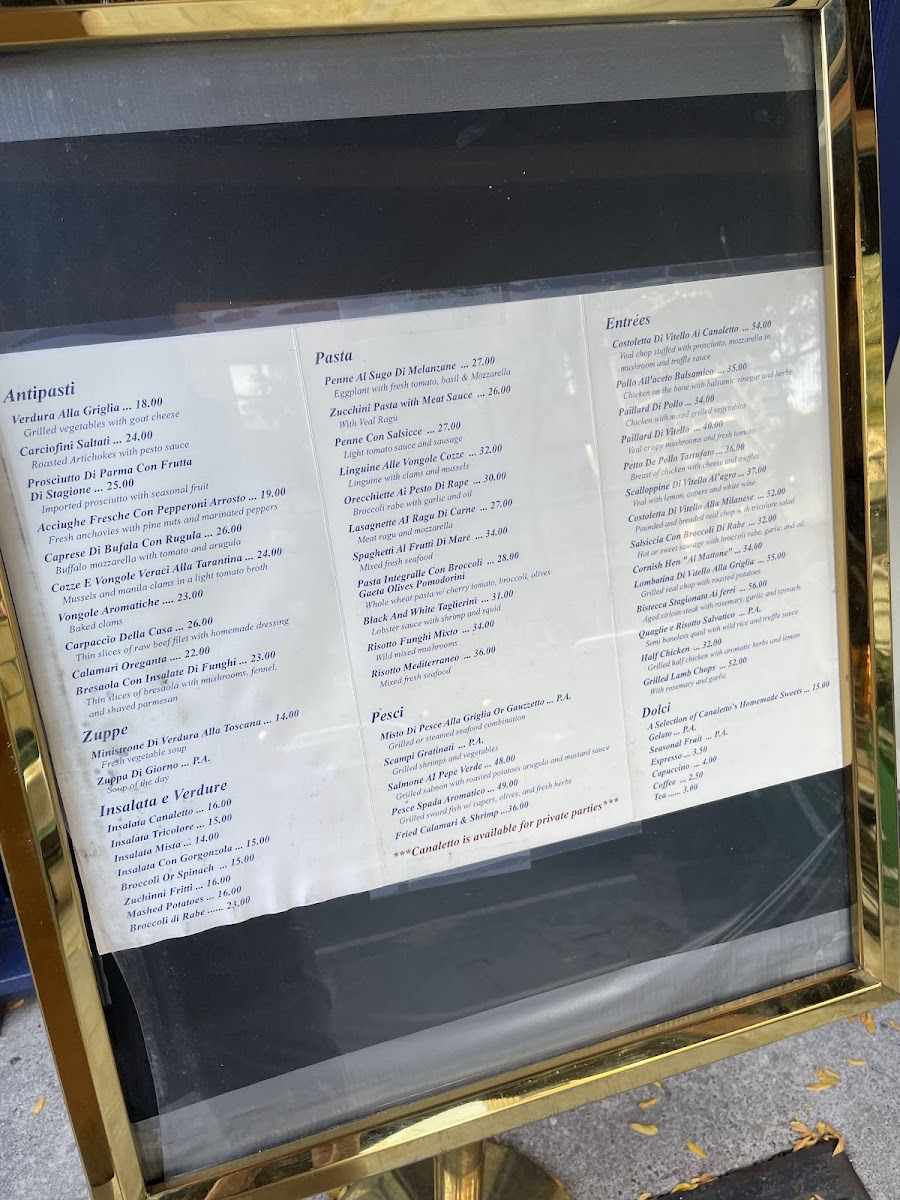 Antipasti
Verdura Alla Griglia ... 18.00
Grilled vegetables with goat cheese
Carciofini Saltati ... 24.00
Roasted Artichokes with pesto sauce
Prosciutto Di Parma Con Frutta
Di Stagione ... 25.00
Imported prosciutto with seasonal fruit
Acciughe Fresche Con Pepperoni Arrosto ... 19.00
Fresh anchovies with pine nuts and marinated peppers
Caprese Di Bufala Con Rugula ... 26.00
Buffalo mozzarella with tomato and arugula
Cozze E Vongole Veraci Alla Tarantina ... 24.00
Mussels and manila clams in a light tomato broth
Vongole Aromatiche .... 23.00
Baked clams
Carpaccio Della Casa ... 26.00
Thin slices of raw beef filet with homemade dressing
Calamari Oreganta .... 22.00
Bresaola Con Insalate Di Funghi ... 23.00
Thin slices of bresaola with mushrooms, fennel,
and shaved parmesan
Zuppe
Ministrone Di Verdura Alla Toscana ... 14.00
Fresh vegetable soup
Zuppa Di Giorno ... P.A.
Soup of the day
Insalata e Verdure
Insalata Canaletto ... 16.00
Insalata Tricolore ... 15.00
Insalata Mista ... 14.00
Insalata Con Gorgonzola ... 15.00
Broccoli Or Spinach ... 15.00
Zuchinni Fritti ... 16.00
Mashed Potatoes ... 16.00
Broccoli di Rabe ...... 23.00
Pasta
Penne Al Sugo Di Melanzane ... 27.00
Eggplant with fresh tomato, basil & Mozzarella
Zucchini Pasta with Meat Sauce ... 26.00
With Veal Ragu
Penne Con Salsicce ... 27.00
Light tomato sauce and sausage
Linguine Alle Vongole Cozze ... 32.00
Linguine with clams and mussels
Orecchiette Ai Pesto Di Rape ... 30.00
Broccoli rabe with garlic and oil
Lasagnette AI Ragu Di Carne ... 27.00
Meat ragu and mozzarella
Spaghetti Al Frutti Di Mare ... 34.00
Mixed fresh seafood
Pasta Integralle Con Broccoli ... 28.00
Gaeta Olives Pomodorini
Whole wheat pasta w/ cherry tomato, broccoli, olives
Black And White Taglierini ... 31.00
Lobster sauce with shrimp and squid
Risotto Funghi Mixto ... 34.00
Wild mixed mushrooms
Risotto Mediterraneo ... 36.00
Mixed fresh seafood
Pesci
Misto Di Pesce Alla Griglia Or Gauzzetto ... P.A.
Grilled or steamed seafood combination
Scampi Gratinati ... P.A.
Grilled shrimps and vegetables
Salmone Al Pepe Verde ... 48.00
Grilled salmon with roasted potatoes arugula and mustard sauce
Pesce Spada Aromatico ... 49.00
Grilled sword fish w/ capers, olives, and fresh herbs
Fried Calamari & Shrimp ...36.00
***Canaletto is available for private parties***
Entrées
Costoletta Di Vitello Ai Canaletto ... 54.00
Veal chop stuffed with prosciutto, mozzarella in
mushroom and truffle sauce
Pollo All'aceto Balsamico ... 35.00
Chicken on the bone with balsamic vinegar and herbs
Paillard Di Pollo ... 34.00
Chicken with mixed grilled vegetables
Paillard Di Vitello ... 40.00
Veal crispy mushrooms and fresh tomato
Petto De Pollo Tartufato ... 36.00
Breast of chicken with cheese and truffles
Scalloppine Di Vitello Al'agro ... 37.00
Veal with lemon, capers and white wine
Costoletta Di Vitello Alla Milanese ... 52.00
Pounded and breaded veal chop with tricolore salad
Salsiccia Con Broccoli Di Rabe ... 32.00
Hot or sweet sausage with broccoli rabe, garlic and oil
Cornish Hen "Al Mattone" ... 34.00
Lombatina Di Vitello Alla Griglia ... 55.00
Grilled veal chop with roasted potatoes
Bistecca Stagionata Ai ferri ... 56.00
Aged sirloin steak with rosemary, garlic and spinach
Quaglie e Risotto Salvatico ... P.A.
Semi boneless quail with wild rice and truffle sauce
Half Chicken ... 32.00
Grilled half chicken with aromatic herbs and lemon
Grilled Lamb Chops ... 52.00
With rosemary and garlic
Dolci
A Selection of Canaletto's Homemade Sweets ... 15.00
Gelato ... P.A.
Seasonal Fruit ... P.A.
Espresso ... 3.50
Capuccino ... 4.00
Coffee ... 2.50
Tea ...... 3.00